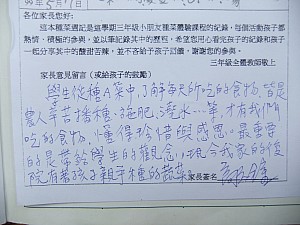 各位家長您好:
這本種菜週記是這學期三年級小朋友種菜體驗課程的紀錄,每個活動孩子都
熱情、積極的參與,並以筆記錄其中的歷程,希望您用心看完孩子的紀錄和孩子
一起分享其中的酸甜苦辣,並不吝給予孩子回饋,謝謝您的參與。
三年級全體教師敬上
家長意見留言(或給孩子的鼓勵)
學生從種A菜中,了解每天所吃的食物,皆是
農人辛苦播種、施肥、澆水…等,才有我們
吃的食物,懂得珍惜與感恩。最重要
的是帶給學生的觀念,現今我家的後
院有著孩子親手種的蔬菜
家長簽名